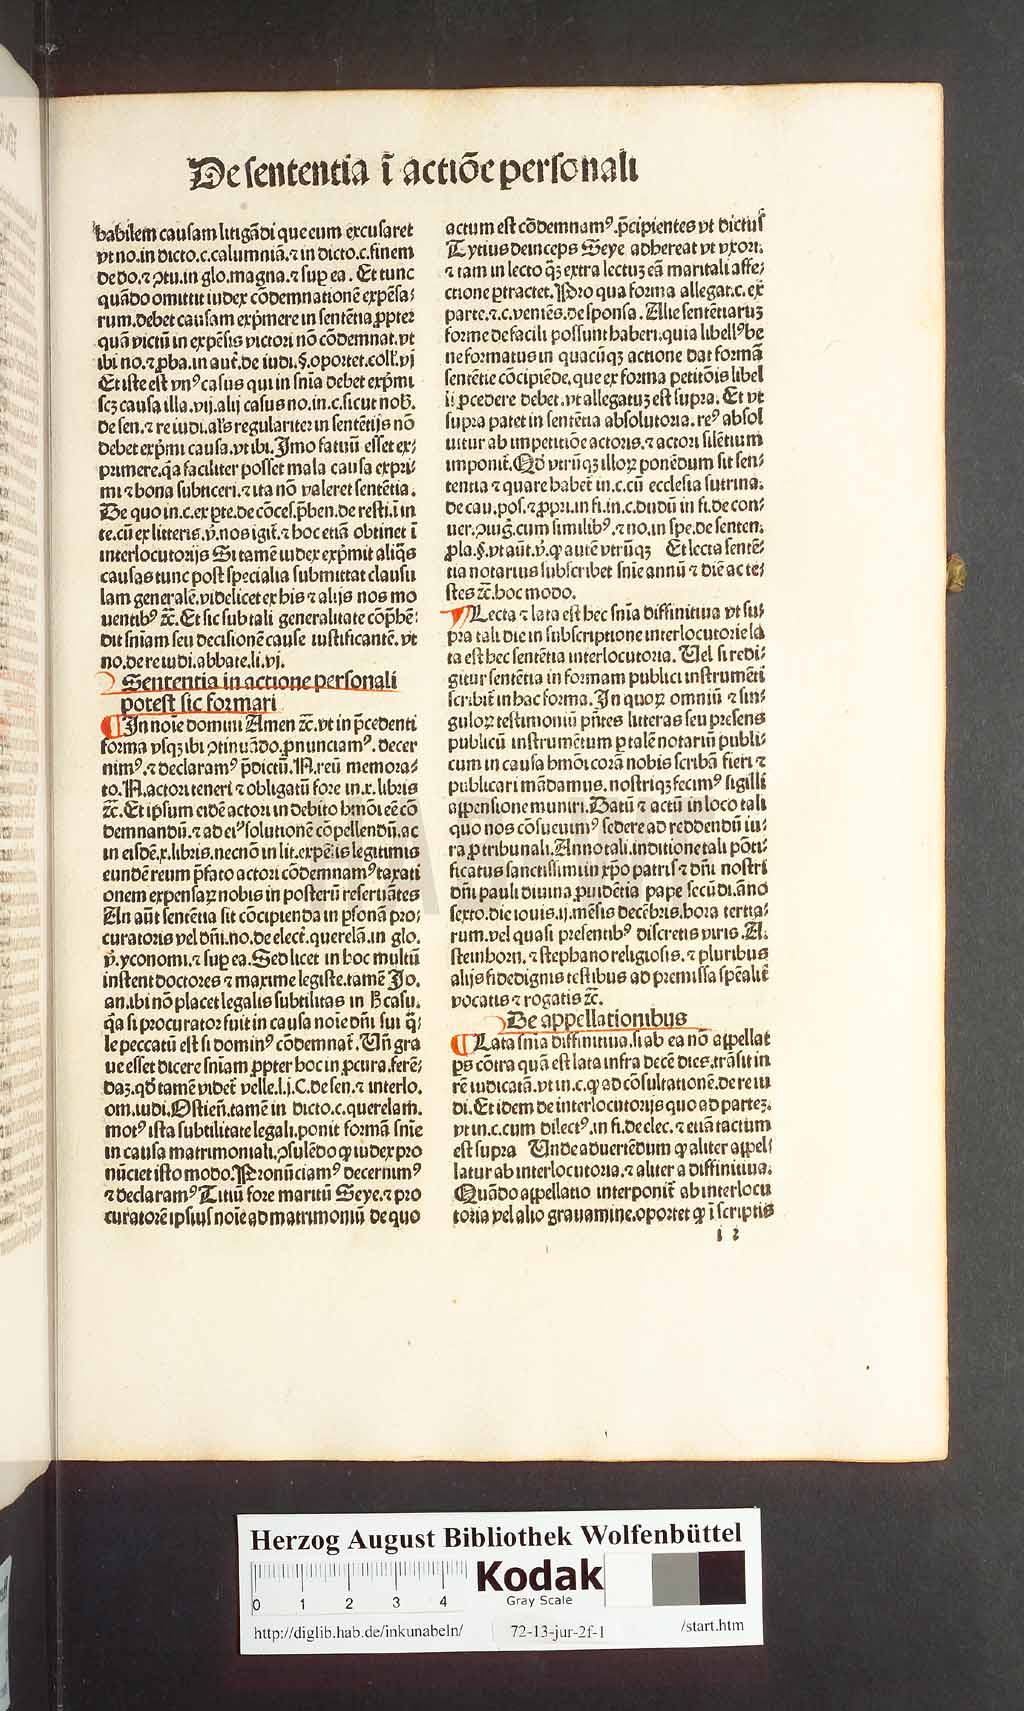 De sententia ī actiōe personali
babilem causam litigādi que eum excusaret
vt no. in dicto .c. calumniā. ⁊ in dicto .c. finem
de do. ⁊ ꝯtu. in glo. magna. ⁊ sup ea. Et tunc
quādo omittit iudex cōdemnationē expēsa⸗
rum. debet causam exp̄mere in sentētia ꝓpter
quā victū in expēsis victori nō cōdemnat. vt
ibi no. ⁊ ꝓba. in aut̄. de iudi. §. oportet. coll̄. vj
Et iste est vnꝰ casus qui in sn̄ia debet exp̄mi
scꝫ causa illa. vij. alij casus no. in .c. sicut nob̄.
de sen. ⁊ re iudi. al̄s regulariter in sentētijs nō
debet exp̄mi causa. vt ibi. Imo fatuū esset ex⸗
primere. q̄a faciliter posset mala causa expri⸗
mi ⁊ bona subticeri. ⁊ ita nō valeret sentētia.
De quo in .c. ex pte. de cōces. p̄ben. de resti. ī in
te. cū ex litteris. ꝟ. nos igit̄. ⁊ hoc etiā obtinet ī
interlocutorijs Si tamē iudex exp̄mit aliq̄s
causas tunc post specialia submittat clausu
lam generalē. videlicet ex his ⁊ alijs nos mo
uentibꝰ ⁊c̄. Et sic sub tali generalitate cōp̄hē⸗
dit sn̄iam seu decisionē cause iustificantē. vt
no. de re iudi. abbate. li. vj.
Sententia in actione persoñali
potest sic formari
¶ In noīe domini Amen ⁊c̄. vt in p̄cedenti
forma vsqꝫ ibi ꝯtinuādo. ꝓnunciamꝰ. decer
nimꝰ. ⁊ declaramꝰ p̄dictū. N. reū memora⸗
to. N. actori teneri ⁊ obligatū fore in .x. libris
⁊c̄. Et ipsum eidē actori in debito bmōi eē cō
demnandū. ⁊ ad eiꝰ solutionē cōpellendū. ac
in eisdē .x. libris. necnō in lit. expēsis legitimis
eundē reum p̄fato actori cōdemnamꝰ taxati
onem expensaꝝ nobis in posterū reseruātes
An aūt sentētia sit cōcipienda in ꝑsonā pro⸗
curatoris vel dn̄i. no. de elect̄. querelā. in glo.
ꝟ. yconomi. ⁊ sup ea. Sed licet in hoc multū
instent doctores ⁊ maxime legiste. tamē Jo.
an. ibi nō placet legalis subtilitas in h̄ casu.
q̄a si procurator fuit in causa noīe dn̄i sui q̄⸗
le peccatū est si dominꝰ cōdemnat̄. Un̄ gra
ue esset dicere sn̄iam ꝓpter hoc in ꝓcura. ferē⸗
daꝫ. qd̄ tamē videt̄ velle .l. j. C. de sen. ⁊ interlo.
om. iudi. Ostien̄. tamē in dicto .c. querelam.
motꝰ ista subtilitate legali. ponit formā sn̄ie
in causa matrimoniali. ꝯsulēdo ꝙ iudex pro
nūciet isto modo. Pronūciamꝰ decernimꝰ
⁊ declaramꝰ Titiū fore maritū Seye. ⁊ pro
curatorē ipsius noīe ad matrimoniū de quo
actum est cōdemnamꝰ. p̄cipientes vt dictus
Tytius deinceps Seye adhereat vt vxori.
⁊ tam in lecto q̄ꝫ extra lectuꝫ eā maritali affe⸗
ctione ꝑtractet. Pro qua forma allegat .c. ex
parte. ⁊ .c. veniēs. de sponsa. Alie sentētiaruꝫ
forme de facili possunt haberi. quia libellꝰ be
ne formatus in quacūqꝫ actione dat formā
sentētie cōcipiēde. que ex forma petitōis libel
li ꝓcedere debet. vt allegatuꝫ est supra. Et vt
supra patet in sentētia absolutoria. reꝰ absol
uitur ab impetitiōe actoris. ⁊ actori silētium
imponit̄. Qd̄ vtrūqꝫ illoꝝ ponēdum sit sen⸗
tentia ⁊ quare habet̄ in .c. cū ecclesia sutrina.
de cau. pos. ⁊ ꝓpri. in fi. in .c. dudū in fi. de con⸗
uer. ꝯiuḡ. cum similibꝰ. ⁊ no. in spe. de senten.
ꝓla. §. vt aūt. ꝟ. ꝙ autē vtrūqꝫ Et lecta sentē⸗
tia notarius subscribet sn̄ie annū ⁊ diē ac te⸗
stes ⁊c̄. hoc modo.
¶ Lecta ⁊ lata est hec sn̄ia diffinitiua vt su⸗
pra tali die in subscriptione interlocutorie la
ta est hec sentētia interlocutoria. Uel si redi⸗
gitur sentētia in formam publici instrumēti
scribit̄ in hac forma. In quoꝝ omniū ⁊ sin⸗
guloꝝ testimoniū pn̄tes litteras seu presens
publicū instrumētum ꝑ talē notariū publi⸗
cum in causa bmōi corā nobis scribā fieri ⁊
publicari mādamus. nostriqꝫ fecimꝰ sigilli
appensione muniri. Datū ⁊ actū in loco tali
quo nos cōsueuimꝰ sedere ad reddendū iu⸗
ra ꝓ tribunali. Anno tali. inditione tali pōti⸗
ficatus sanctissimi in xp̄o patris ⁊ dn̄i nostri
dn̄i pauli diuina ꝓuidētia pape secūdi. āno
sexto. die iouis. ij. mēsis decēbris. hora tertia⸗
rum. vel quasi presentibꝰ discretis viris. A.
steinhorn. ⁊ stephano religiosis. ⁊ pluribus
alijs fidedignis testibus ad premissa spēalit̄
vocatis ⁊ rogatis ⁊c̄.
De appellationibus
¶ Lata sn̄ia diffinitiua. si ab ea nō appellat
ps cōtra quā est lata infra decē dies. trāsit in
rē iudicatā. vt in .c. ꝙ ad cōsultationē. de re iu
di. Et idem de interlocutorijs quo ad parteꝫ.
vt in .c. cum dilectꝰ. in fi. de elec. ⁊ etiā tactum
est supra Unde aduertēdum ꝙ aliter appel⸗
latur ab interlocutoria. ⁊ aliter a diffinitiua.
Quādo appellatio interponit̄ ab interlocu
toria vel alio grauamine. oportet ꝙ ī scriptis
Herzog August Bibliothek Wolfenbüttel
0 1 2 3 4
Kodak
Gray Scale
http://diglib.hab.de/inkunabeln/ 72-13-jur-2f-1 /start.htm